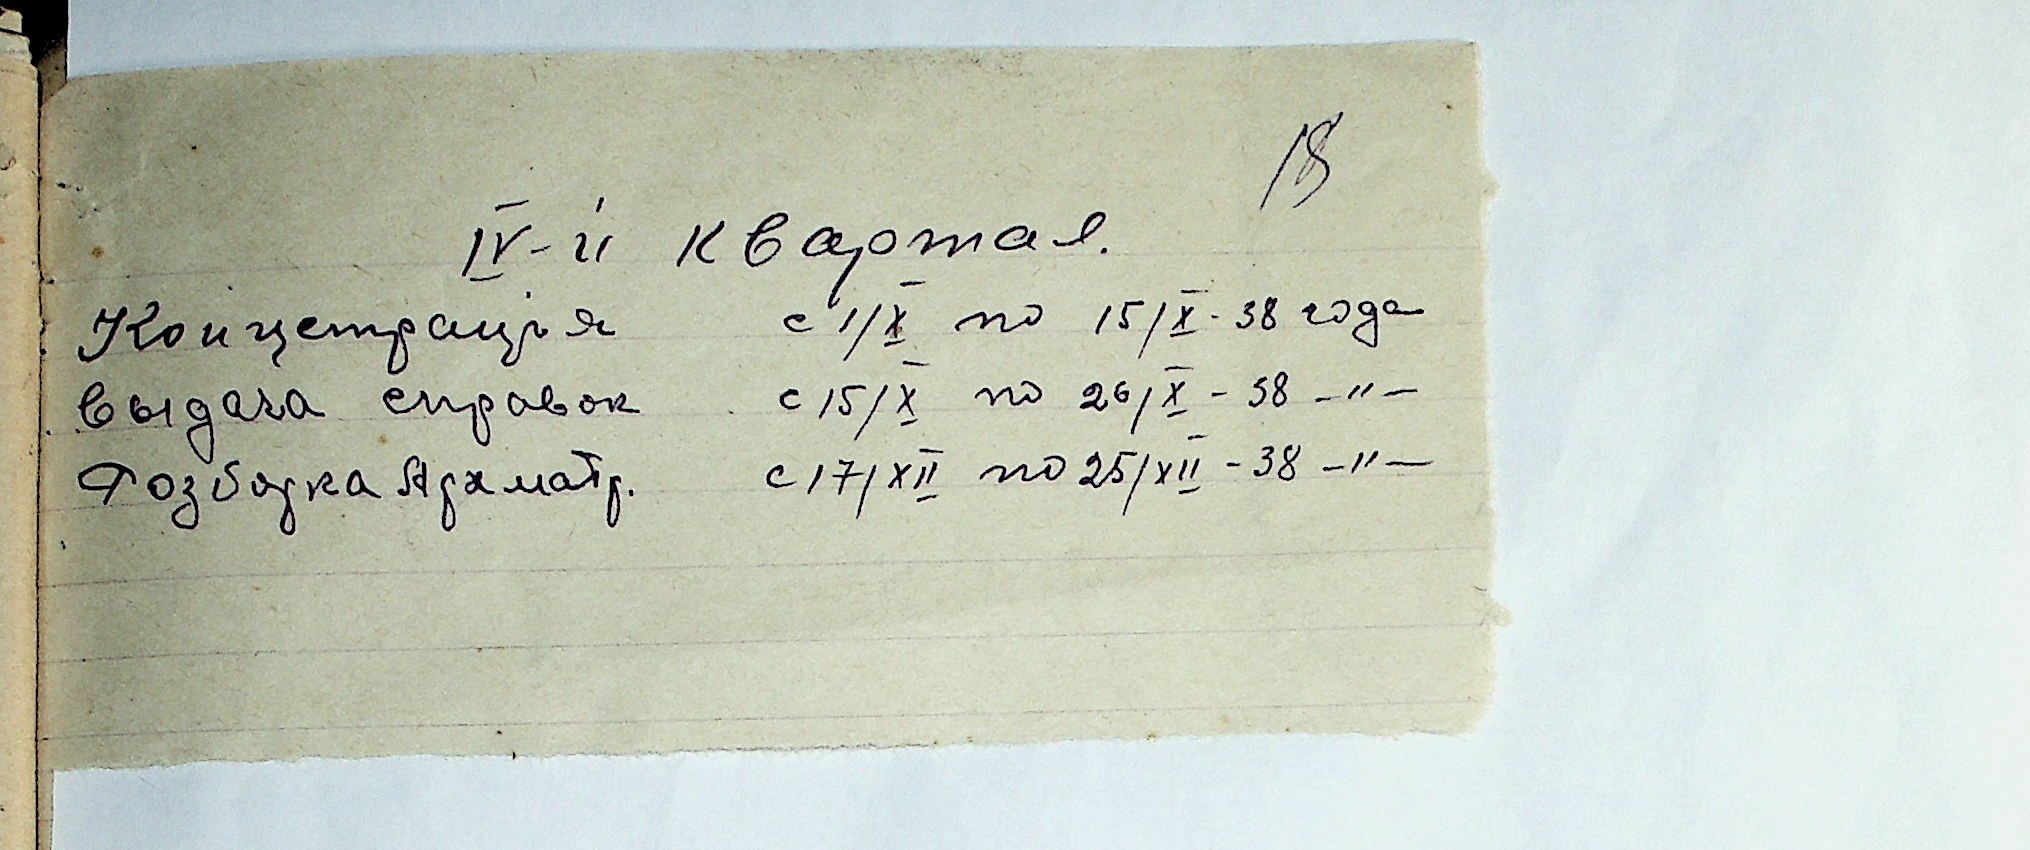 18
IV-й квартал.
Концетрація с 1/X по 15/X-38 года
Выдача справок с 15/X по 26/X-38 -"-
Розборка Архматр. с 17/XII по 25/XII-38 -"-